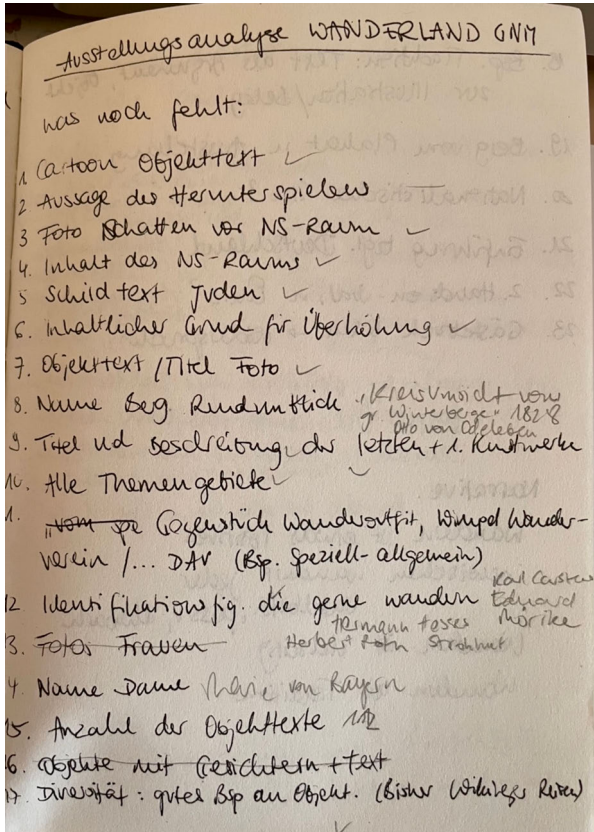 Ausstellungsanalyse WANDERLAND GNM
was noch fehlt:
1 Cartoon Objekttext ✓
2 Aussage des Herunterspielens —
3 Foto Schatten vor NS-Raum ✓
4. Inhalt des NS-Raums ✓
5 Schildtext Juden ✓
6. Inhaltlicher Grund für Überhöhung ✓
7. Objekttext / Titel Foto ✓
8. Name Berg Rundumblick "Kreisumsicht vom
gr. Winterberge" 1828
Otto von Odeleben
9. Titel und Beschreibung der letzten + 1. Kunstwerke
10. Alle Themengebiete ✓
1. Gegenstück Wanderoutfit, Wimpel Wander-
verein /... DAV (Bsp. Speziell-allgemein)
12 Identifikationsfig. die gerne wandern Karl Carstens
Eduard Mörike
Hermann Hesse
Herbert Strohhut
3. Fotos Frauen
4. Name Dame Marie von Bayern
15. Anzahl der Objekttexte 112
6. Objekte mit Gesichtern + Text
17. Diversität: gutes Bsp an Objekt. (Bisher Reisen)